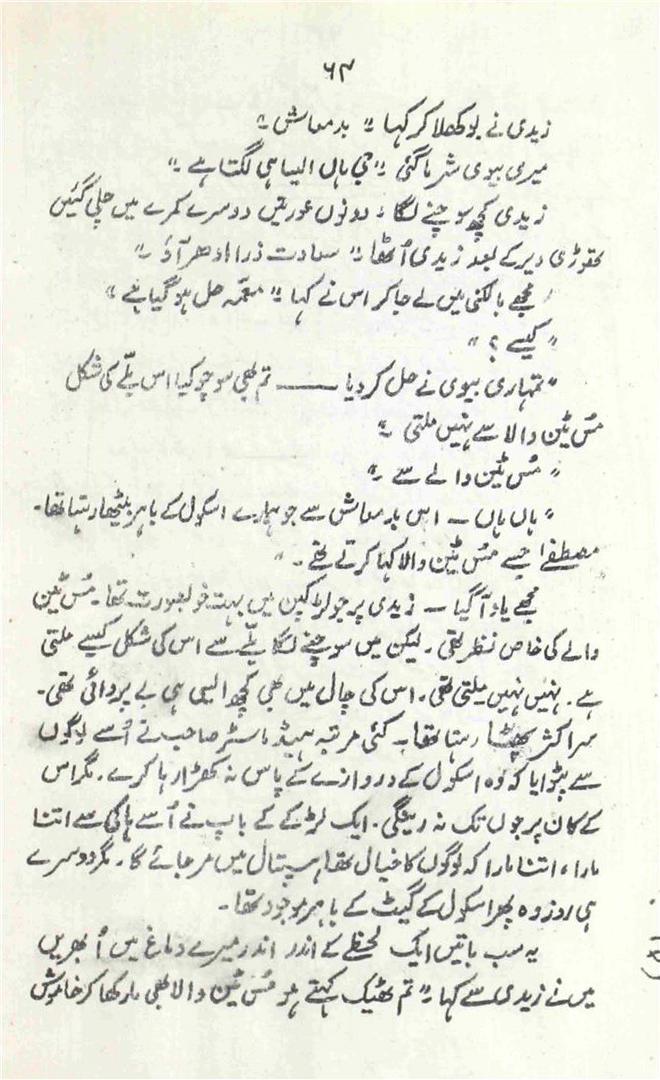 ۶۴
زیدی نے بوکھلا کر کہا " بدمعاش "
میری بیوی شرما گئی " جی ہاں ایسا ہی لگتا ہے "
زیدی کچھ سوچنے لگا۔ دونوں عورتیں دوسرے کمرے میں چلی گئیں
تھوڑی دیر کے بعد زیدی اُٹھا " سعادت ذرا ادھر آؤ "
مجھے بالکنی میں لے جا کر اس نے کہا " معمّہ حل ہو گیا ہے "
" کیسے ؟ "
" تمہاری بیوی نے حل کر دیا ـــــــ تم بھی سوچو کیا اس بِلّے کی شکل
مس ٹین والا سے نہیں ملتی "
" مس ٹین والے سے "
" ہاں ہاں ۔ اس بدمعاش سے جو ہمارے اسکول کے باہر بیٹھا رہتا تھا۔
مصطفےٰ جسے مس ٹین والا کہا کرتے تھے ۔ "
مجھے یاد آ گیا ۔ زیدی پر جو لڑکپن میں بہت خوبصورت تھا۔ مس ٹین
والے کی خاص نظر تھی۔ لیکن میں سوچنے لگا بِلّے سے اس کی شکل کیسے ملتی
ہے ۔ نہیں نہیں ملتی تھی۔ اس کی چال میں بھی کچھ ایسی ہی بے پروائی تھی۔
سر اکثر پھٹا رہتا تھا۔ کئی مرتبہ ہیڈ ماسٹر صاحب نے اُسے لوگوں
سے پٹوایا کہ وہ اسکول کے دروازے کے پاس نہ کھڑا رہا کرے۔ مگر اس
کے کان پر جوں تک نہ رینگی۔ ایک لڑکے کے باپ نے اُسے ہاکی سے اتنا
مارا، اتنا مارا کہ لوگوں کا خیال تھا ہسپتال میں مر جائے گا۔ مگر دوسرے
ہی روز وہ پھر اسکول کے گیٹ کے باہر موجود تھا۔
یہ سب باتیں ایک لحظے کے اندر اندر میرے دماغ میں اُبھریں
میں نے زیدی سے کہا " تم ٹھیک کہتے ہو مس ٹین والا بھی مار کھا کر خاموش